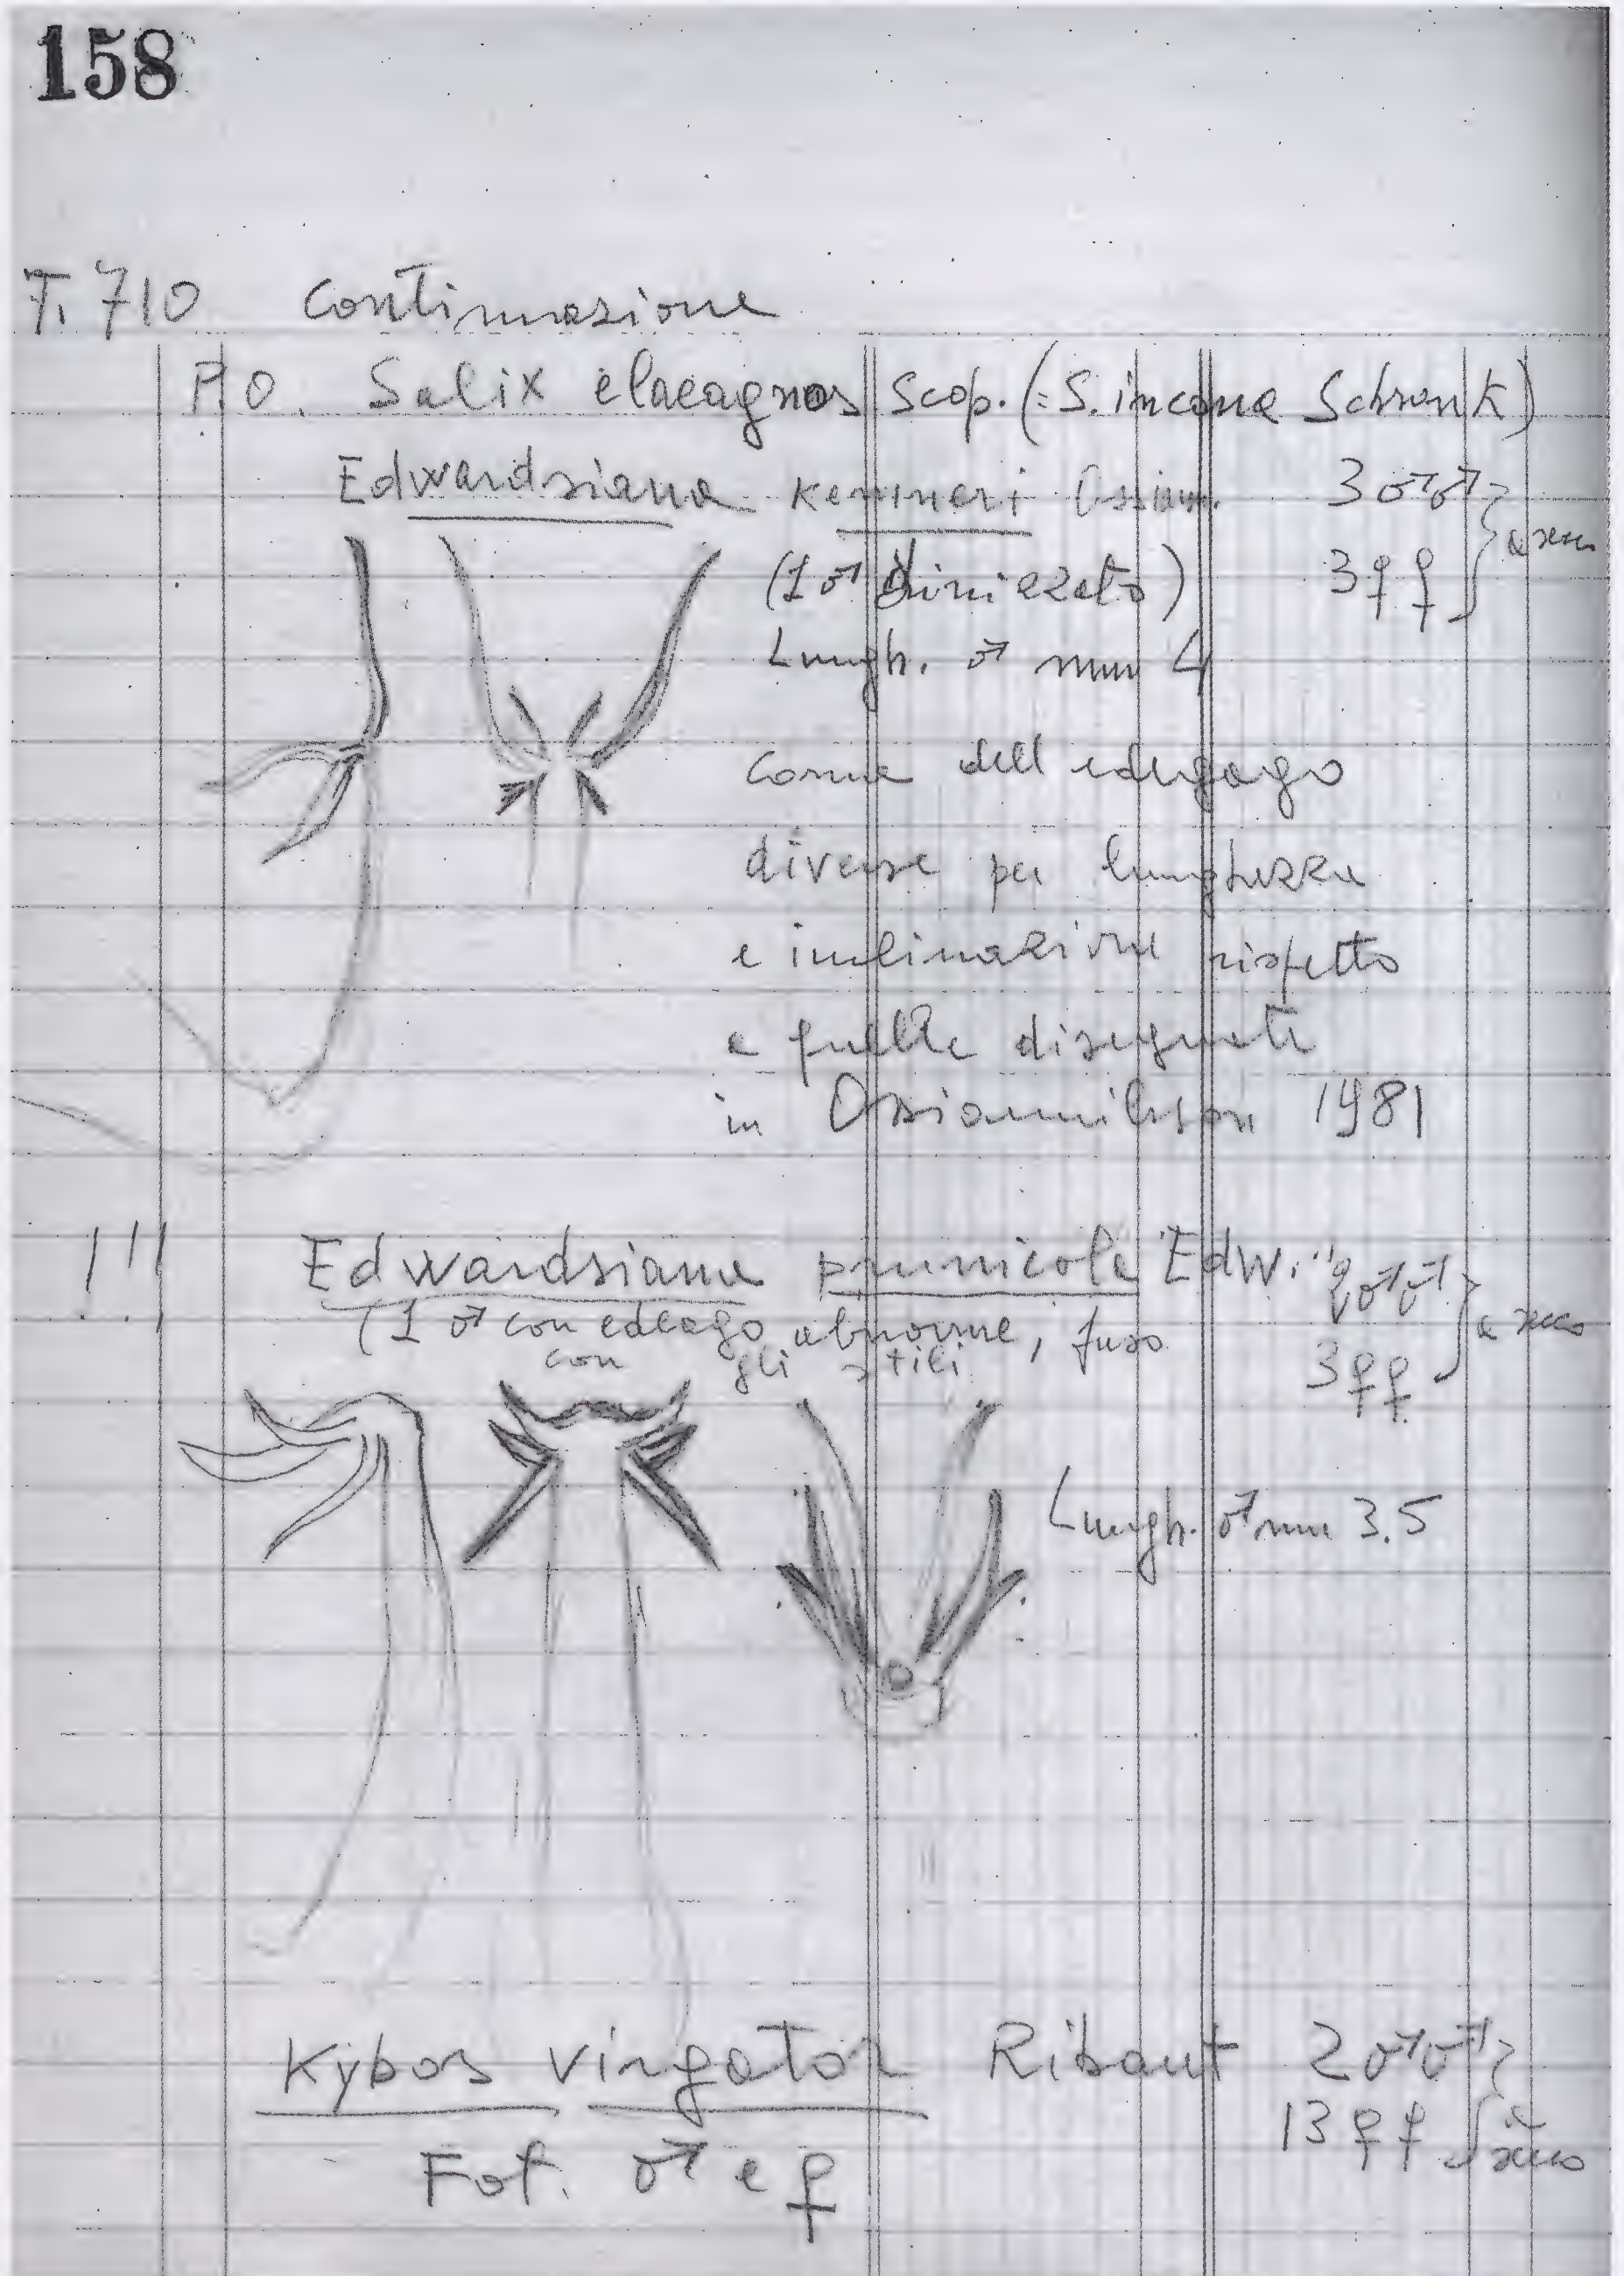 158
T. 710 Continuazione
P.O. Salix elaeagnos Scop. (= S. incana Schrank)
Edwardsiana kemneri Ossiann. 3 ♂♂
a secco
(1 ♂ ) 3 ♀♀
Lungh. ♂ mm 4
corna dell edeagago
diverse per lunghezza
e inclinazione rispetto
a quelle disegnate
in Ossiannilsson 1981
!!! Edwardsiana prunicola Edw. ♂♂
a secco
(1 ♂ con edeago abnorme, fuso
con gli stili 3 ♀♀
Lungh. ♂ mm 3.5
Kybos virgator Ribaut 2 ♂♂
13 ♀♀ a secco
Fot. ♂ e ♀